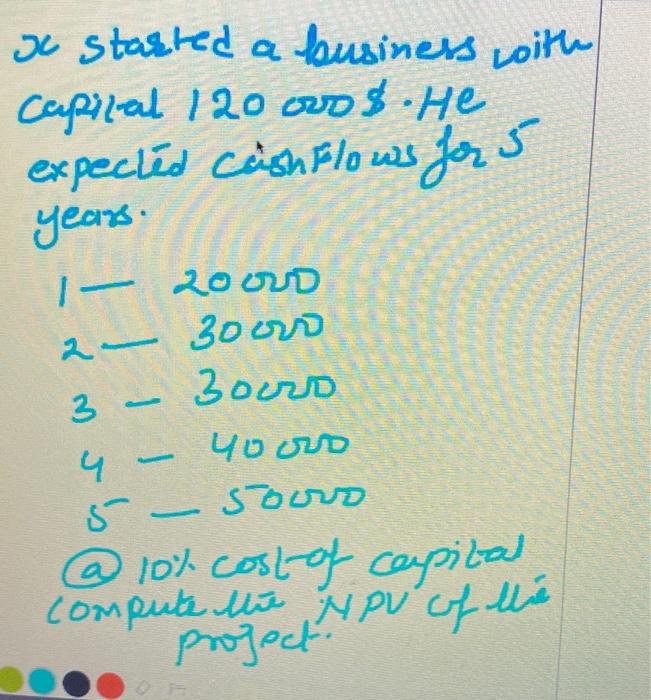 x started a business with
capital 120 000 $. He
expected cash Flows for 5
years.
1 — 20 000
2 — 30 000
3 – 30000
4 – 40 000
5 — 50000
@ 10% cost of capital
compute the NPV of the
project.